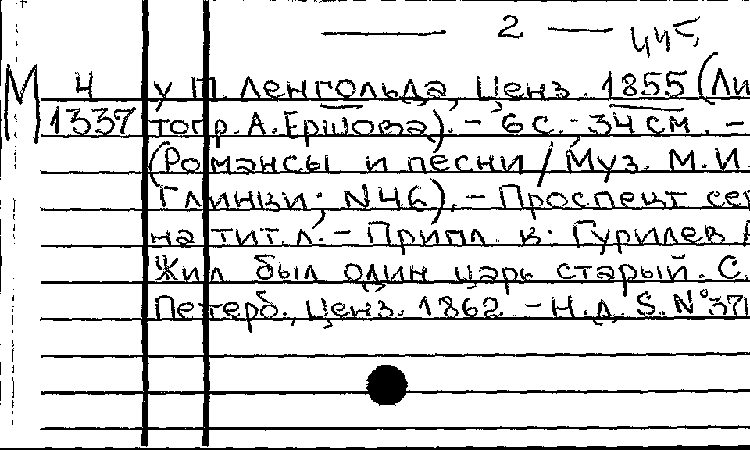 — 2 — 445
М 4 у П. Ленгольда, Ценз. 1855 (Ли
1337 тогр. А. Ершова). - 6 с.; 34 см. -
(Романсы и песни / Муз. М. И.
Глинки; N46). - Проспект сер
на тит. л. - Припл. к: Гурилев А
Жил был один царь старый. С.
Петерб., Ценз. 1862. - Н. д. S. N° 371